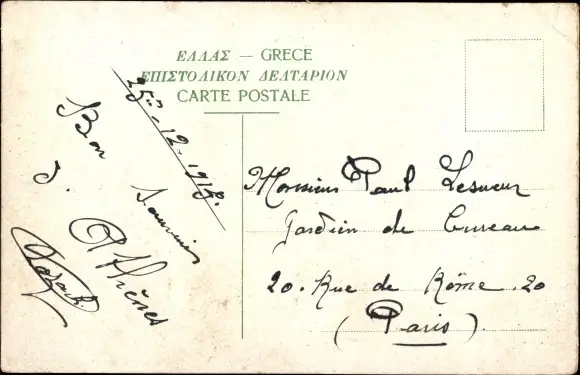 ΕΛΛΑΣ — GRECE
ΕΠΙΣΤΟΛΙΚΟΝ ΔΕΛΤΑΡΙΟΝ
CARTE POSTALE
25 - 12 - 1918.
Bon Souvenir
d'Athènes
Monsieur Paul Lesueur
Gardien de Bureau
20. Rue de Rôme. 20
(Paris)